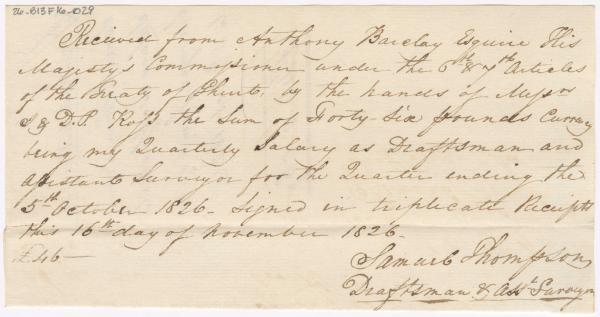 26-B13F16-1029
Recieved from Anthony Barclay Esquire His
Majesty's Commissioner under the 6th & 7th Articles
of the Treaty of Ghent, by the hands of Messrs
S & D. S. the Sum of Forty-six pounds Currency
being my Quarterly Salary as Draftsman and
Assistant Surveyor for the Quarter ending the
5th October 1826 - Signed in triplicate Receipts
this 16th day of November 1826 -
£46 -
Samuel Thompson
Draftsman & Asst Surveyor